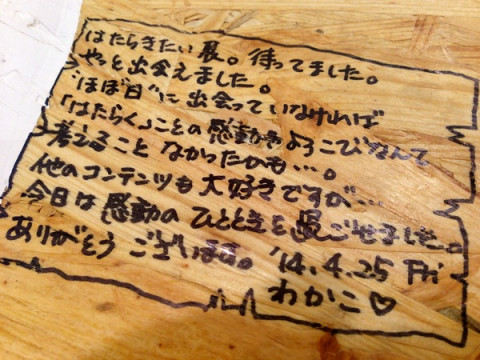 はたらきたい展。待ってました。
やっと出会えました。
"ほぼ日"に出会っていなければ
「はたらく」ことの感動やよろこびなんて
考えることなかったかも…。
他のコンテンツも大好きですが…
今日は感動のひとときを過ごせました。
ありがとうございます。'14.4.25 Fri
わかこ♡